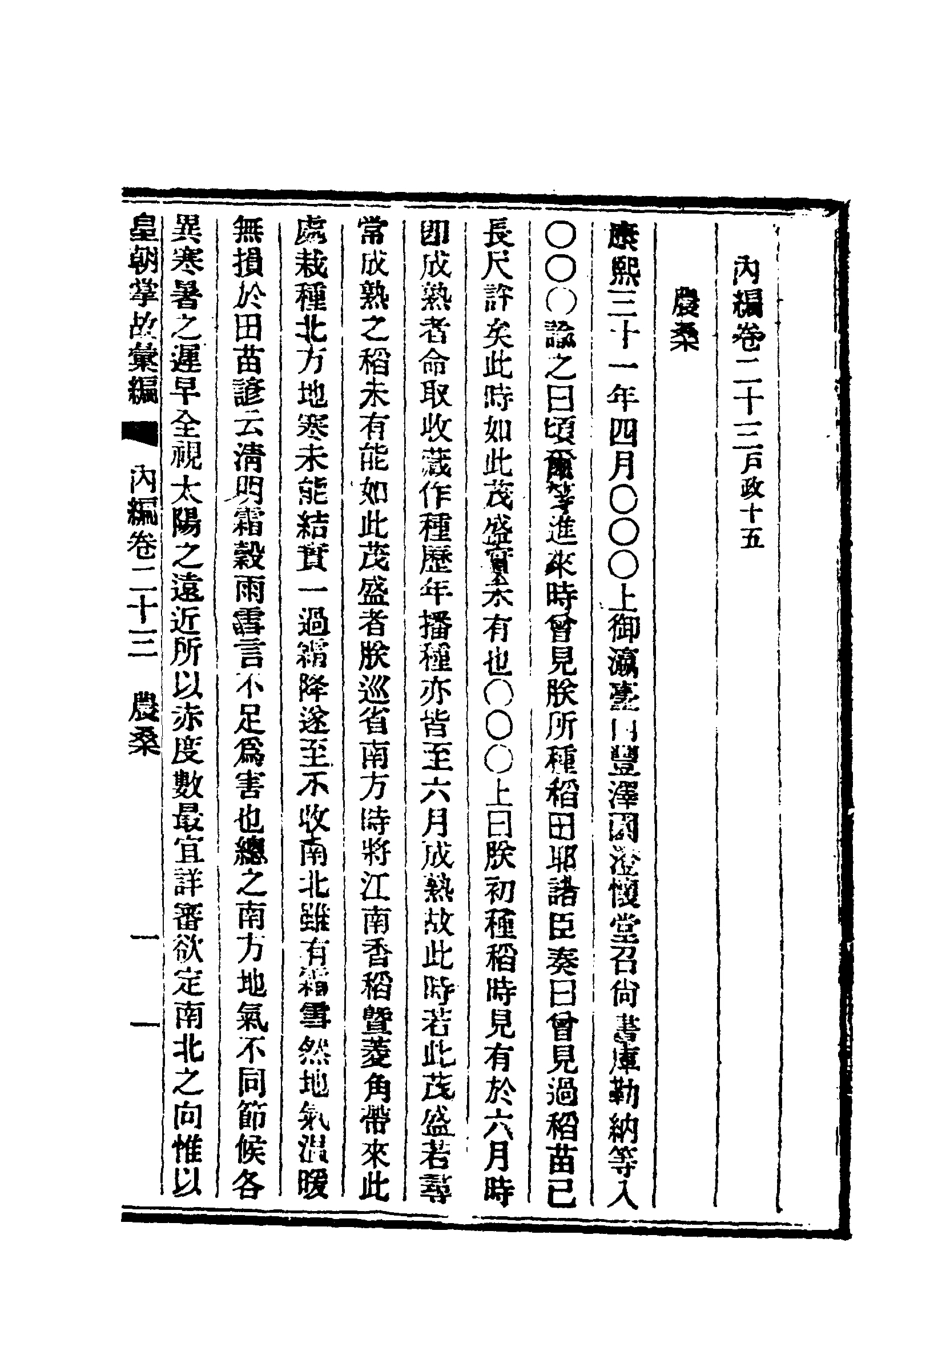 內編卷二十三戶政十五
農桑
康熙三十一年四月〇〇〇上御瀛臺內豐澤園澄懷堂召尙書庫勒納等入
〇〇〇諭之曰頃爾等進來時曾見朕所種稻田耶諸臣奏曰曾見過稻苗已
長尺許矣此時如此茂盛實未有也〇〇〇上曰朕初種稻時見有於六月時
卽成熟者命取收藏作種歷年播種亦皆至六月成熟故此時若此茂盛若尋
常成熟之稻未有能如此茂盛者朕巡省南方時將江南香稻暨菱角帶來此
處栽種北方地寒未能結實一過霜降遂至不收南北雖有霜雪然地氣溫暖
無損於田苗諺云清明霜穀雨雪言不足爲害也總之南方地氣不同節候各
異寒暑之遲早全視太陽之遠近所以赤度數最宜詳審欲定南北之向惟以
皇朝掌故彙編 內編卷二十三 農桑 一 一